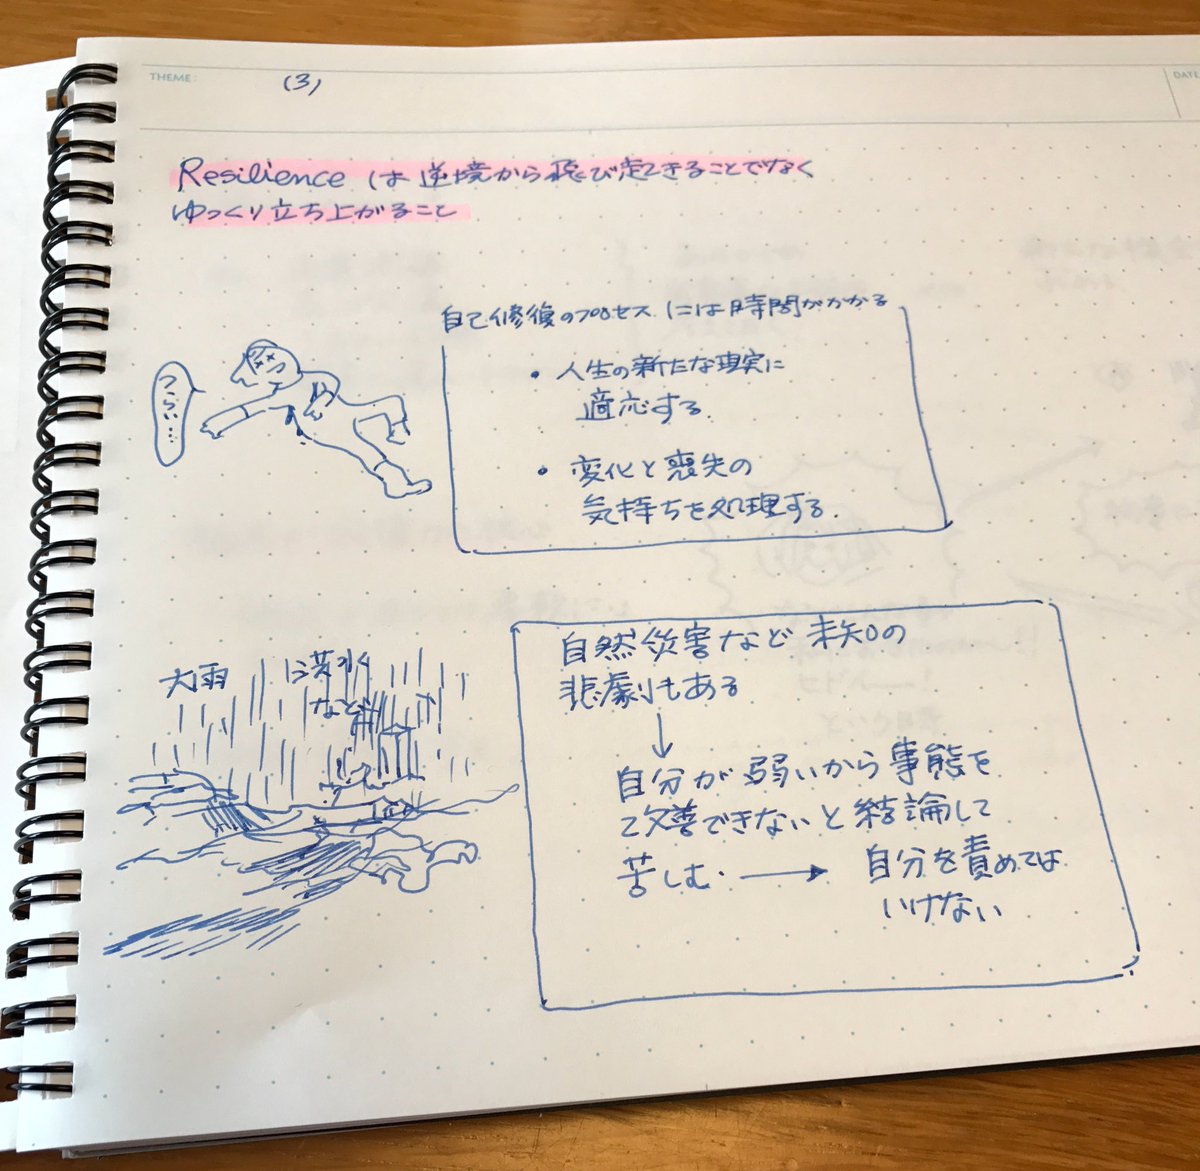 THEME:
(3)
DATE
Resilience は逆境から飛び起きることでなく
ゆっくり立ち上がること
自己修復のプロセスには時間がかかる
つらい…
・人生の新たな現実に
適応する
・変化と喪失の
気持ちを処理する
大雨
洪水
など
自然災害など未知の
悲劇もある
↓
自分が弱いから事態を
改善できないと結論して
苦しむ → 自分を責めては
いけない